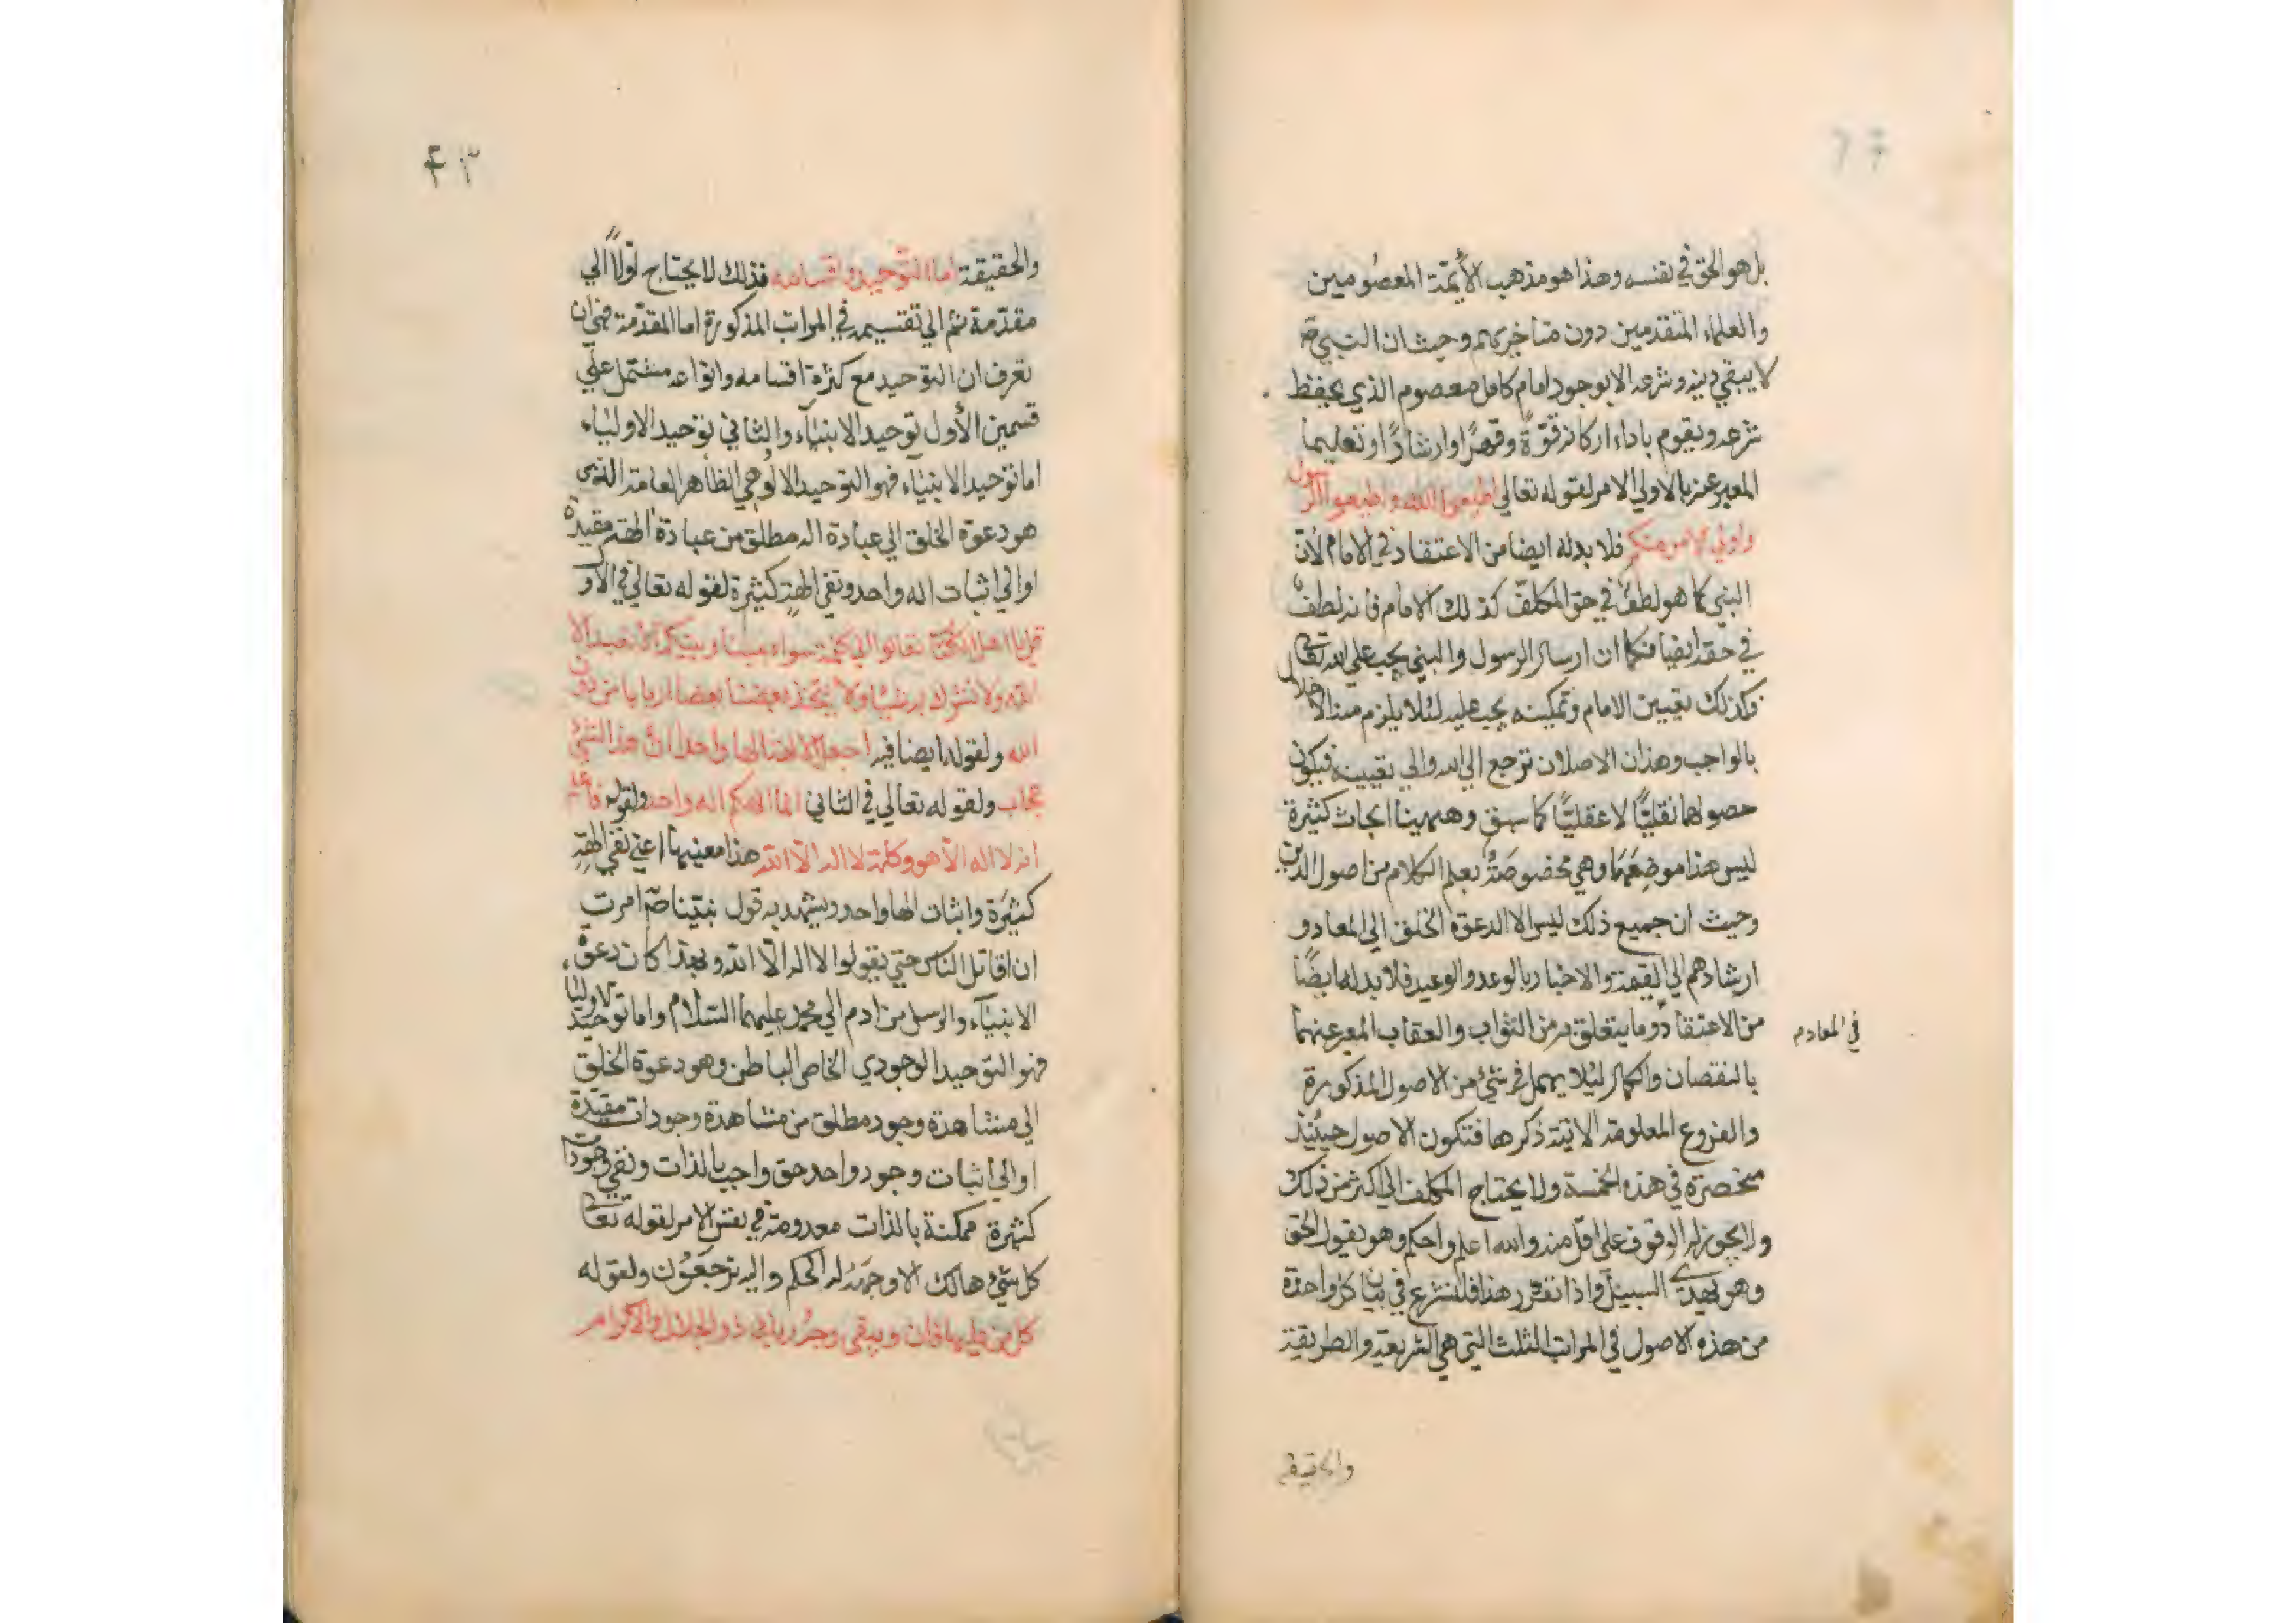 بل هو الحق في نفسه وهذا هو مذهب الأيمّة المعصومين
والعلماء المتقدمين دون متاخريهم وحيث ان النبي ص
لا يبقي دينه وشرعه الا بوجود امام كامل معصوم الذي يحفظ
شرعه ويقوم باداء اركانه قوّة وقهرًا وارشادًا وتعليما
المعبر عنه بالاولي الامر لقوله تعالي اطيعوا الله واطيعوا الرسول
واولي الامر منكم فلا بد له ايضا من الاعتقاد في الامام لأن
النبي كما هو لطفٌ في حق المكلّف كذلك الامام فانه لطفٌ
في حقه ايضا فكما ان ارسال الرسول والنبي يجب علي الله تعالى
فكذلك تعيين الامام وتمكينه يجب عليه لئلا يلزم منه الاخلال
بالواجب وهذان الاصلان ترجع الي الله والي تعيينه فيكون
حصولهما نقليًّا لا عقليًّا كما سبق وههينا ابحاث كثيرة
ليس هذا موضعها وهي مخصوصة بعلم الكلام من اصول الدين
وحيث ان جميع ذلك ليس الا لدعوة الخلق الي المعاد و
ارشادهم الي القيمة والاخبار بالوعد والوعيد فلا بد له ايضًا
من الاعتقاد وما يتعلق به من الثواب والعقاب المعبر عنهما
في المعاد م
بالنقصان والكمال ليُلا يهمل في شيء من الاصول المذكورة
والفروع المعلومة الاتية ذكرها فتكون الاصول حينئذ
منحصرة في هذه الخمسة ولا يحتاج المكلف الي اكثر من ذلك
ولا يجوز له الوقوف علي اقل منه والله اعلم واحكم وهو يقول الحق
وهو يهدي السبيل واذا تقرر هذا فلنشرع في بيان كل واحدة
من هذه الاصول في المراتب الثلث التي هي الشريعة والطريقة
والحقيقة
٤٣
والحقيقة اما التوحيد واقسامه فذلك لا يحتاج اولاً الي
مقدّمة ثم الي تقسيمه في المراتب المذكورة اما المقدّمة فهي ان
تعرف ان التوحيد مع كثرة اقسامه وانواعه مشتمل علي
قسمين الأول توحيد الانبيآء والثاني توحيد الاولياء
اما توحيد الانبيآء فهو التوحيد الالوهي الظاهر العامة الذي
هو دعوة الخلق الي عبادة اله مطلق من عبادة الهة مقيدة
او الي اثبات اله واحد ونفي الهةٍ كثيرة لقوله تعالي في الأوّل
قل يا اهل الكتاب تعالوا الي كلمة سواء بيننا وبينكم ان لا نعبد الا
الله ولا نشرك به شيئا ولا يتخذ بعضنا بعضا اربابا من دون
الله ولقوله ايضا فيه اجعل الالهة الها واحدا ان هذا لشيء
عجاب ولقوله تعالي في الثاني انما الهكم اله واحد ولقوله فاعلم
انه لا اله الا هو وكلمة لا اله الا الله هذا معنيها اعني نفي الهةٍ
كثيرَة واثبات الها واحد ويشهد به قول نبيّنا ص امرت
ان اقاتل الناس حتي يقولوا لا اله الا الله وبهذا كان دعوة
الانبيآء والرسل من ادم الي محمد عليهما السّلام واما توحيد الاولياء
فهو التوحيد الوجودي الخاص الباطن وهو دعوة الخلق
الي مشاهدة وجود مطلق من مشاهدة وجودات مقيّدة
او الي اثبات وجود واحد حق واجب بالذات ونفي وجودات
كثيرة ممكنة بالذات معدومة في نفس الامر لقوله تعالى
كل شيء هالك الا وجهه له الحكم واليه ترجعُون ولقوله
كل من عليها فان ويبقي وجه ربك ذو الجلال والاكرام